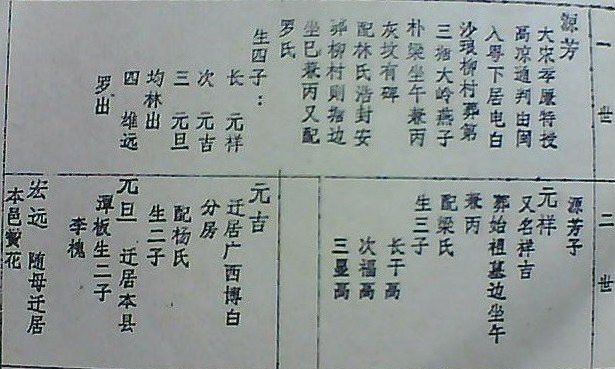 一世
源芳
大宋孝廉特授
高凉通判由闽
入粤下居电白
沙琅柳村葬第
三塘大岭燕子
朴梁坐午兼丙
灰坟有碑
配林氏浩封安
葬柳村则塘边
坐巳兼丙又配
罗氏
生四子：
长 元样
次 元吉
三 元旦
均林出
四 雄远
罗出
二世
源芳子
元祥
又名祥吉
葬始祖墓边坐午
兼丙
配梁氏
生三子
长千高
次福高
三显高
元吉
迁居广西博白
分房
配杨氏
生二子
元旦 迁居本县
潭板生二子
李槐
宏远 随母迁居
本邑黉花